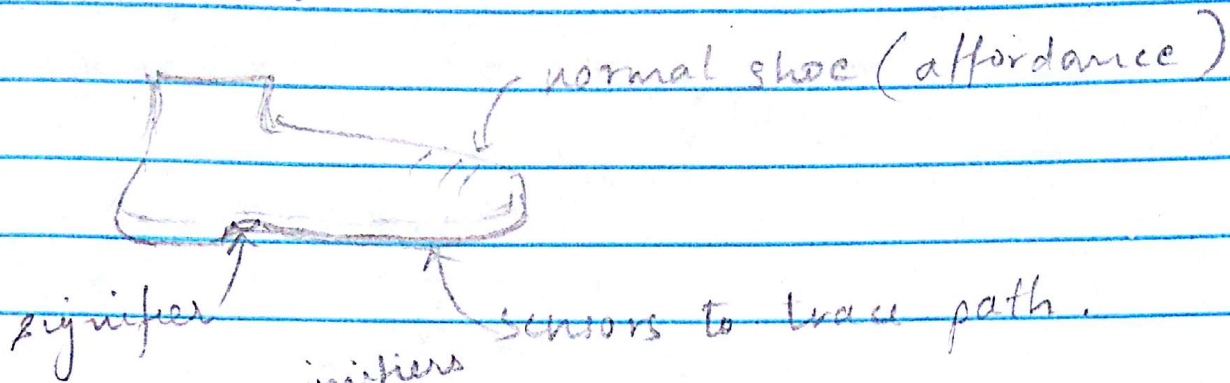 normal shoe (affordance)
signifier
sensors to trace path.